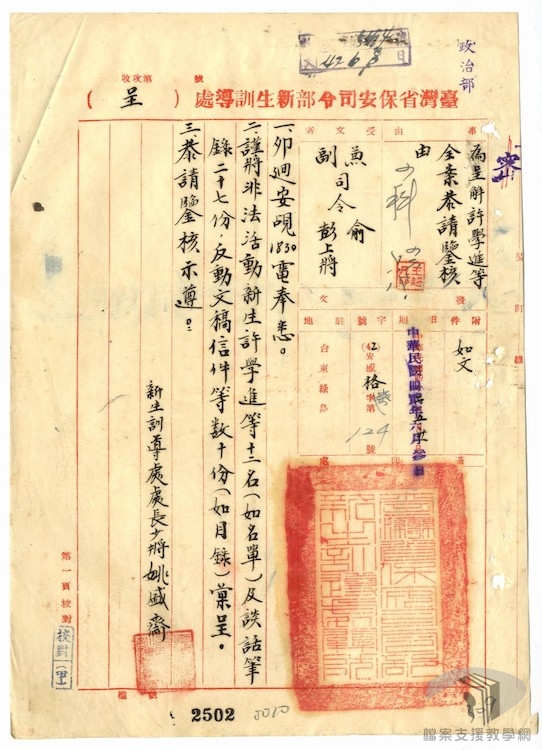 政治部
42.6.8
收文 字第 號
臺灣省保安司令部新生訓導處(呈)
事由
為呈解許學進等全案恭請鑒核由
密
受文者
兼司令 俞
副司令 彭上將
附件
如文
日期
中華民國四貳年六月參日
字號
(42)安威字第 124 號
駐地
台東綠島
一、卯迴安覞1830電奉悉。
二、謹將非法活動新生許學進等十二名(如名單)及談話筆
錄二十七份,反動文稿信件等數十份(如目錄)彙呈。
三、恭請鑒核示遵。
新生訓導處處長少將姚盛齋
第一頁校對
校對(甲)
檔號
2502
309
檔案支援教學網